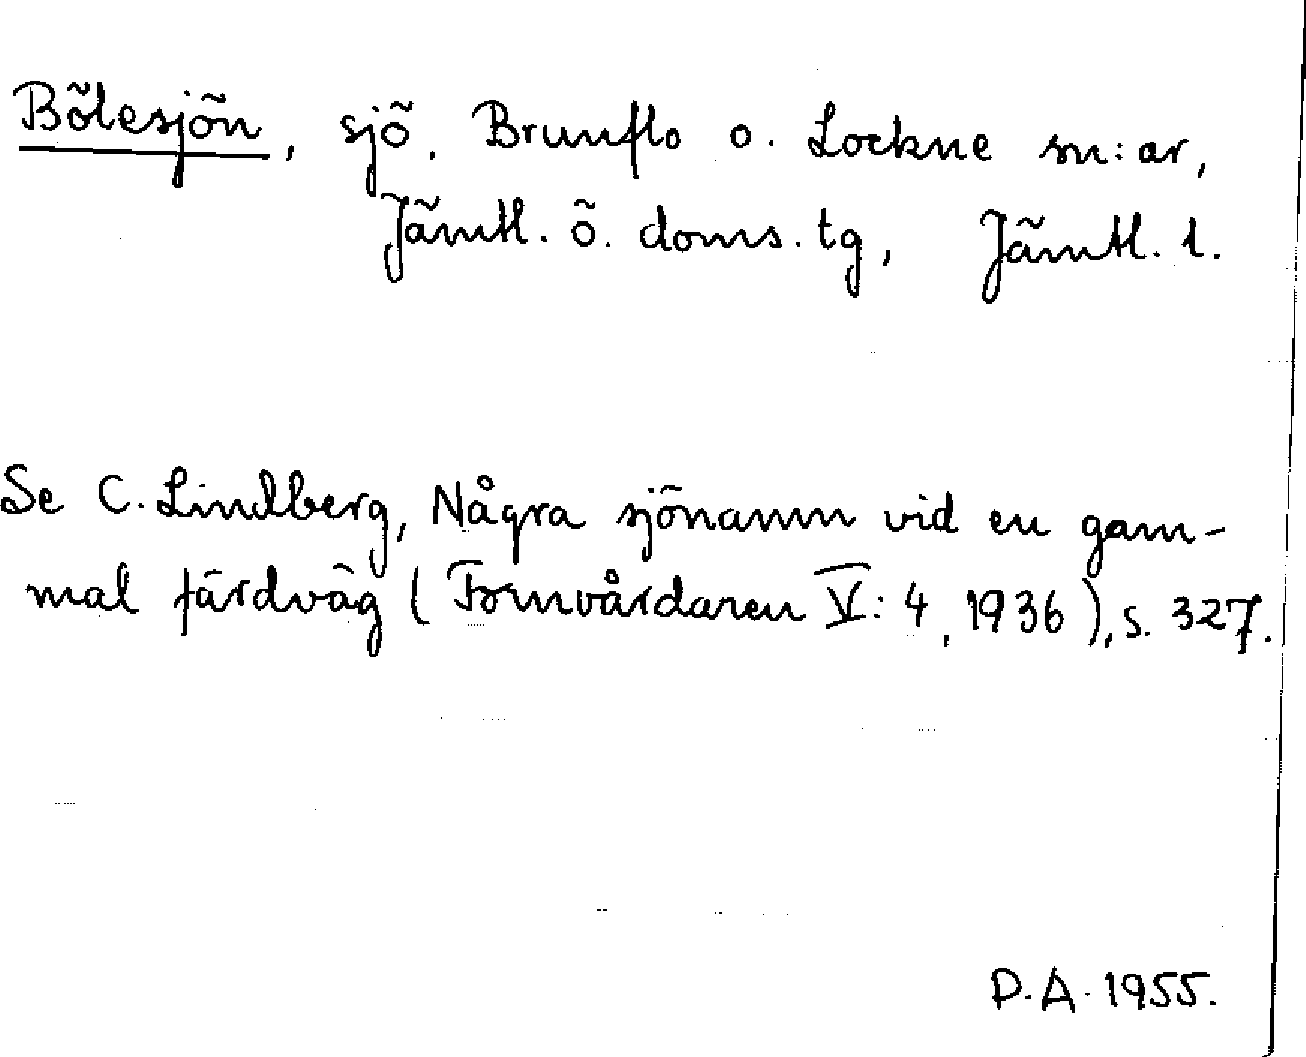 Bölesjön, sjö, Brunflo o. Lockne sn:ar,
Jämtl. ö. doms. tg, Jämtl. l.
Se C. Lindberg, Några sjönamn vid en gam-
mal färdväg (Fornvårdaren V: 4, 1936), s. 327.
D. A. 1955.